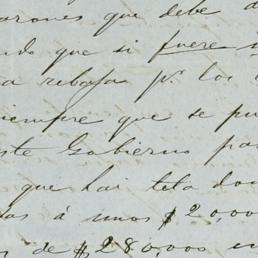 arones que debe
que si fuere
a rebaja pr. los
siempre que se pu
ste Gobierno pa
que hai
as á unos $20,00
s de $280,000 en